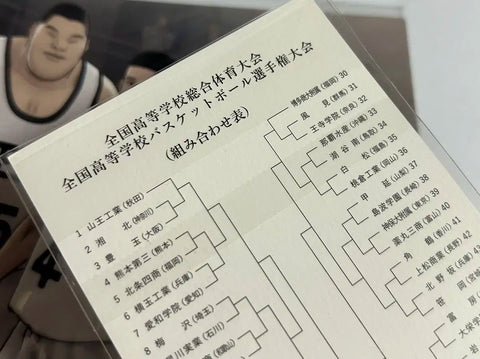 全国高等学校総合体育大会
全国高等学校バスケットボール選手権大会
(組み合わせ表)
1 山王工業(秋田)
2 湘北(神奈川)
3 豊玉(大阪)
4 熊本第三(熊本)
5 北条四商(福岡)
6 横玉工業(兵庫)
7 愛和学院(愛知)
8 梅沢(埼玉)
実業(石川)
博多商大附属(福岡) 30
風見(群馬) 31
王寺学院(奈良) 32
那覇水産(沖縄) 33
湖谷南(鳥取) 34
白松(福島) 35
桃倉工業(岡山) 36
甲延(山梨) 37
島波学園(長崎) 38
神保大附属(東京) 39
薬丸三商(富山) 40
角鶴(香川) 41
上松商業(長野) 42
北野坂(兵庫) 43
笹岡(宮崎)
富岡
大栄学
岩